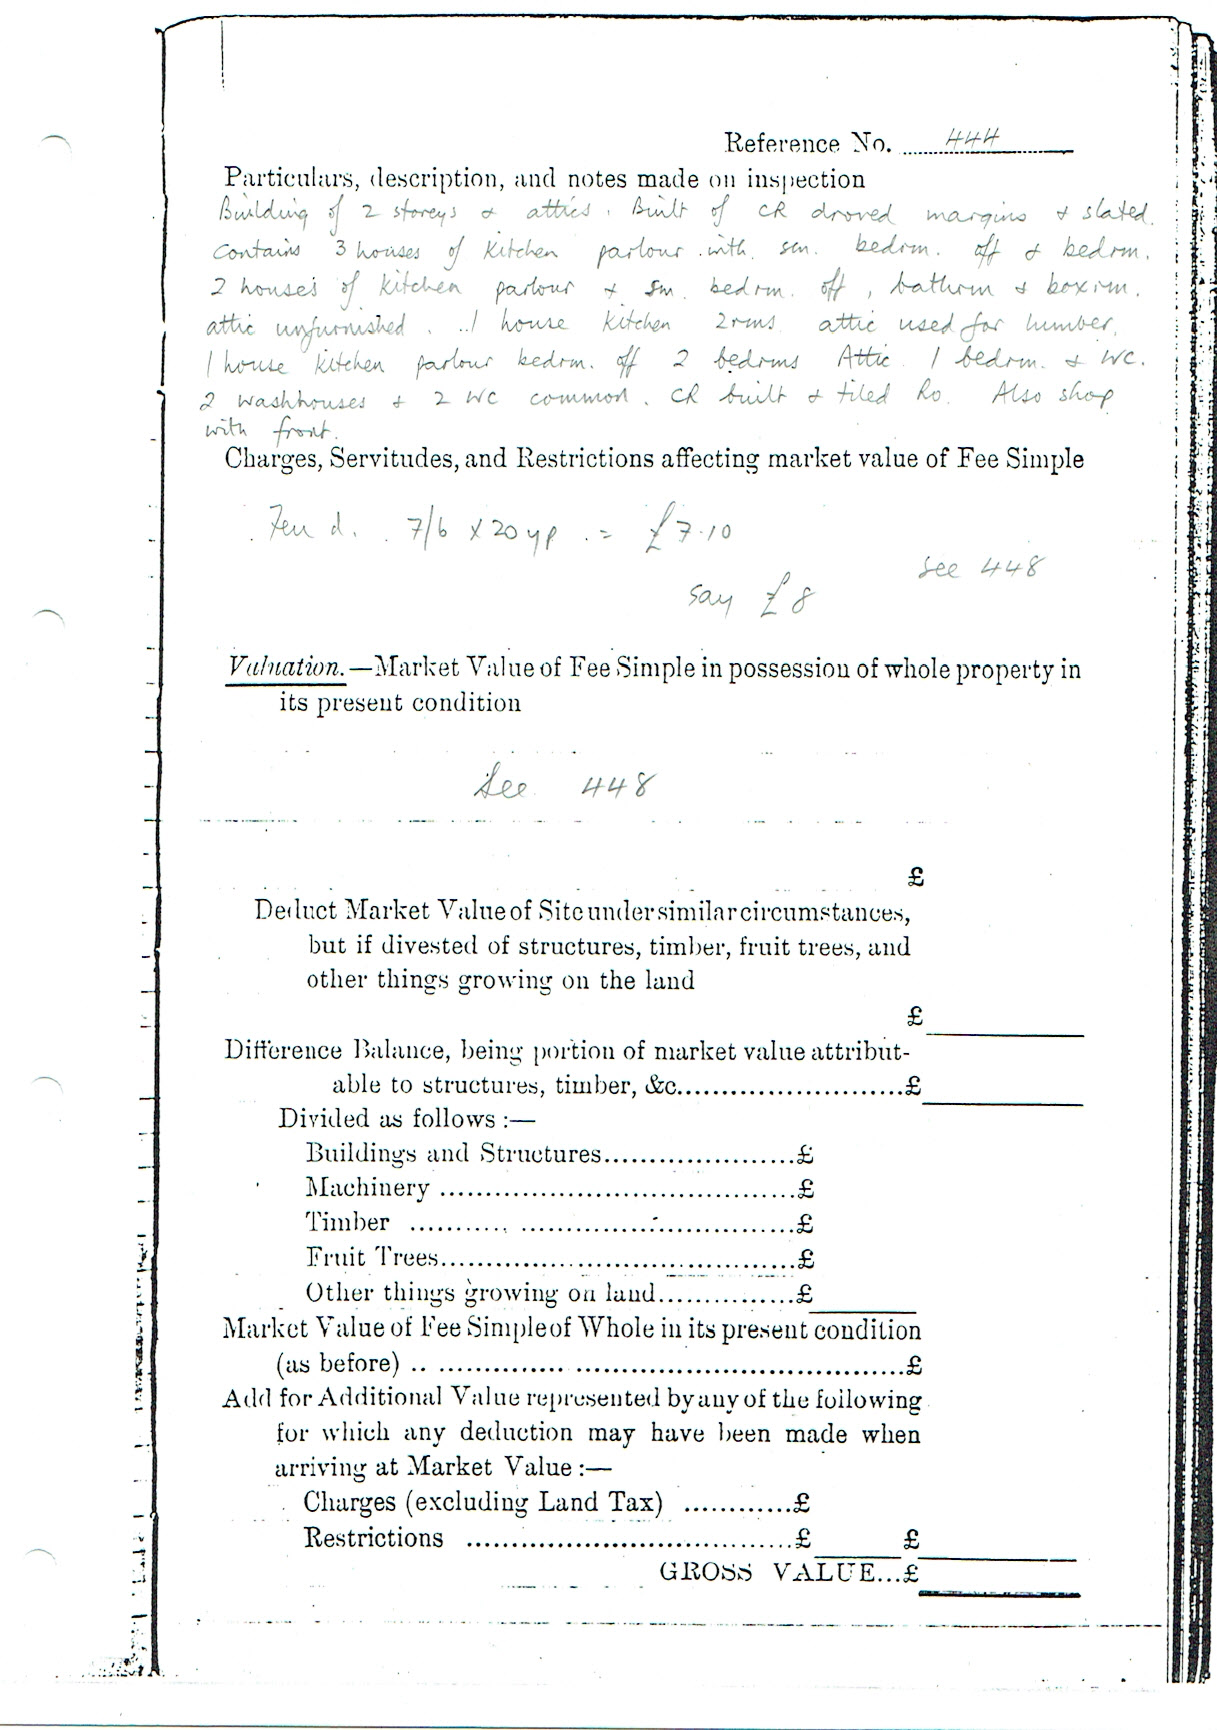 Reference No. 444
Particulars, description, and notes made on inspection
Building of 2 storeys & attics. Built of CR droved margins & slated.
Contains 3 houses of kitchen parlour with sm. bedrm. off & bedrm.
2 houses of kitchen parlour & sm. bedrm. off, bathrm & boxrm.
attic unfurnished. 1 house kitchen 2rms attic used for lumber.
1 house kitchen parlour bedrm. off 2 bedrms Attic 1 bedrm. & WC.
2 washhouses & 2 WC common. CR built & tiled Ro. Also shop
with front.
Charges, Servitudes, and Restrictions affecting market value of Fee Simple
Feu d. 7/6 x 20 yp = £7.10
see 448
say £8
Valuation.—Market Value of Fee Simple in possession of whole property in
its present condition
See 448
£
Deduct Market Value of Site under similar circumstances,
but if divested of structures, timber, fruit trees, and
other things growing on the land
£
Difference Balance, being portion of market value attribut-
able to structures, timber, &c..........................£
Divided as follows :—
Buildings and Structures......................£
Machinery ........................................£
Timber ...........................................£
Fruit Trees........................................£
Other things growing on land...............£
Market Value of Fee Simple of Whole in its present condition
(as before) ......................................................£
Add for Additional Value represented by any of the following
for which any deduction may have been made when
arriving at Market Value :—
Charges (excluding Land Tax) ............£
Restrictions .....................................£ £
GROSS VALUE...£